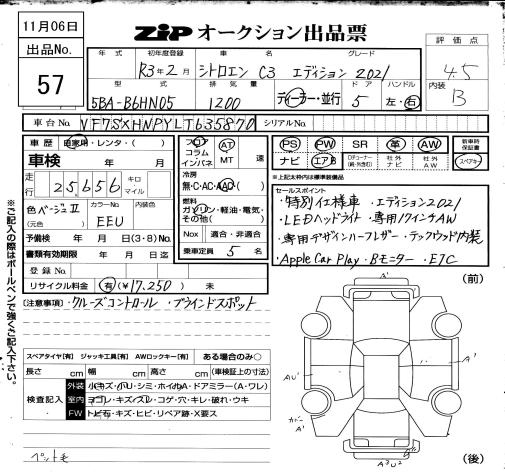 11月06日
出品No.
57
ZIP オークション出品票
年式 初年度登録 車名 グレード
R3年2月 シトロエン C3 エディション2021
評価点
4.5
内装 B
型式 排気量 ドア ハンドル
5BA-B6HN05 1200 ディーラー・並行 5 左・右
車台No. VF7SXHNPYLT635870 シリアルNo.
車歴 自家用・レンタ・( )
車検 年 月
走行 25,656 キロ マイル
色 ベージュⅡ (元色) カラーNo. EEU 内装色
予備検 年 月 日(3・8)No.
書類有効期限 年 月 日迄
登録No.
リサイクル料金 有(¥17,250) 未
フロア コラム インパネ AT MT 速
冷房 無・C・AC・AAC
燃料 ガソリン・軽油・電気・その他( )
Nox 適合・非適合
乗車定員 5 名
PS PW SR 革 AW
ナビ エアB 社外ナビ 社外AW
取説車時 保証書
スペアキー
※上記太枠内は標準装備品
セールスポイント
・特別仕様車 ・エディション2021
・LEDヘッドライト ・専用17インチAW
・専用デザインハーフレザー ・テックウッド内装
・Apple Car Play ・Bモニター ・ETC
※ご記入の際はボールペンで強くご記入下さい。
[注意事項] ・クルーズコントロール ・ブラインドスポット
スペアタイヤ[有] ジャッキ工具[有] AWロックキー[有] ある場合のみ○
長さ cm 幅 cm 高さ cm (車検証上の寸法)
検査記入
外装 小キズ・小凹・シミ・ホイルA・ドアミラー(A・ワレ)
室内 ヨゴレ・キズ・スレ・コゲ・穴・キレ・破れ・ウキ
FW トビ石・キズ・ヒビ・リペア跡・X要ス
ペット毛
(前)
A¹
A¹
AU¹
カバー A¹
A³U²
(後)